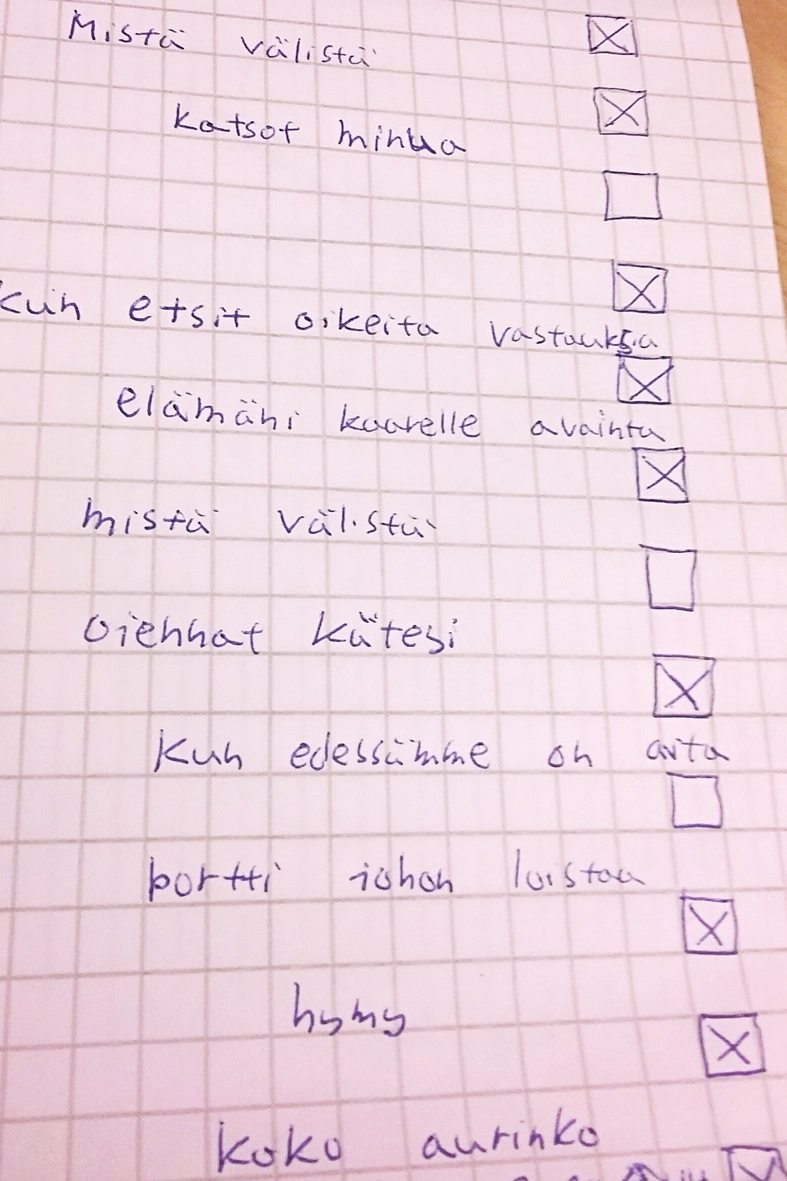 Mistä välistä
katsot minua
kun etsit oikeita vastauksia
elämäni kaarelle avainta
mistä välistä
ojennat kätesi
kun edessämme on aita
portti johon loistaa
hymy
koko aurinko